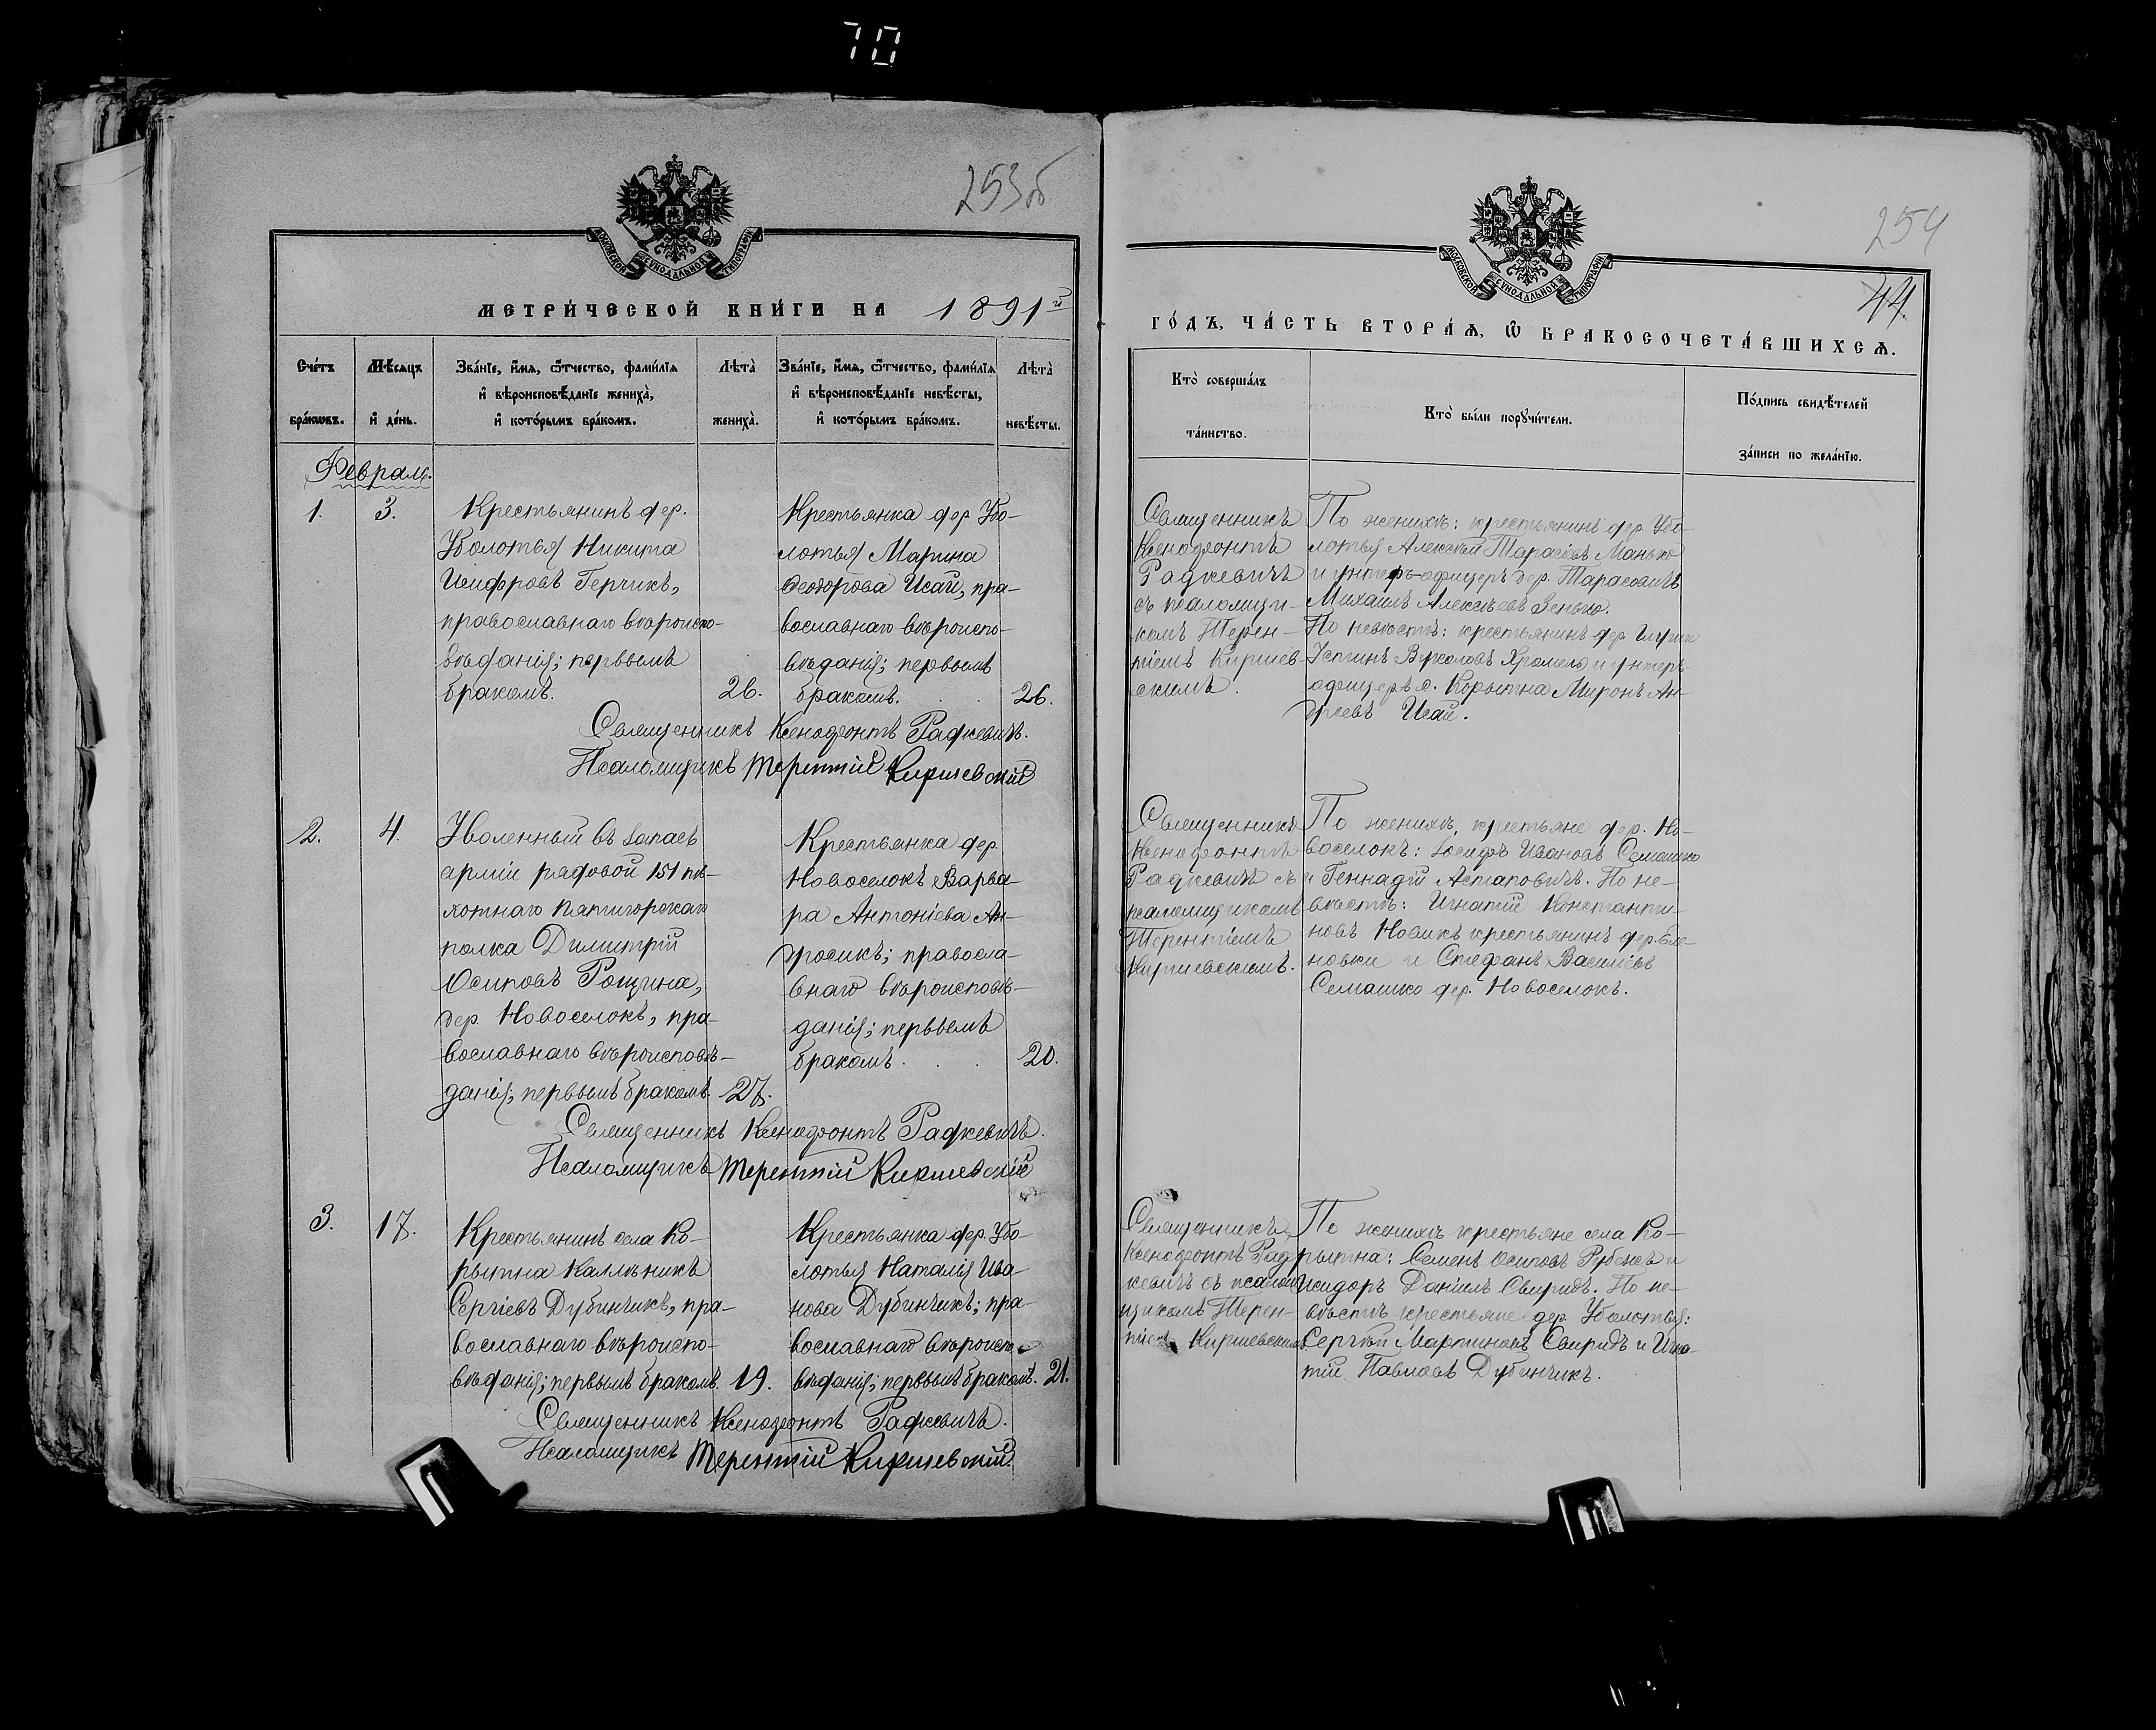 70
253об
МОСКОВСКОЙ СѴНОДАЛЬНОЙ ТИПОГРАФІИ
МЕТРИ́ЧЕСКОЙ КНИ́ГИ НА 1891й
Сче́тъ бра́кѡвъ.
Мѣ́сяцъ и҆ де́нь.
Зва́нїе, и҆́мѧ, ѻ҆́тчество, фами́лїѧ
и҆ вѣроисповѣ́данїе жениха̀,
и҆ кото́рымъ бра́комъ.
Лѣта̀ жениха̀.
Зва́нїе, и҆́мѧ, ѻ҆́тчество, фами́лїѧ
и҆ вѣроисповѣ́данїе невѣ́сты,
и҆ кото́рымъ бра́комъ.
Лѣта̀ невѣ́сты.
Февраль.
1.
3.
Крестьянинъ дер.
Уболотья Никита
Герчикъ,
православнаго вѣроиспо-
вѣданія; первымъ
бракомъ.
26.
Крестьянка дер. Убо-
лотья Марина
Ѳеодорова Исай, пра-
вославнаго вѣроиспо-
вѣданія; первымъ
бракомъ.
26.
Священникъ Ксенофонтъ Радкевичъ.
Псаломщикъ Терентій Киршевскій
2.
4.
Уволенный въ запасъ
арміи рядовой 151 пѣ-
хотнаго Пятигорскаго
полка Димитрій
Осиповъ Рощина,
дер. Новоселокъ, пра-
вославнаго вѣроисповѣ-
данія; первымъ бракомъ.
27.
Крестьянка дер.
Новоселокъ Варва-
ра Антоніева Ан-
дросикъ; правосла-
внаго вѣроисповѣ-
данія; первымъ
бракомъ.
20.
Священникъ Ксенофонтъ Радкевичъ.
Псаломщикъ Терентій Киршевскій
3.
17.
Крестьянинъ села Ко-
рытна Каллиникъ
Сергіевъ Дубинчикъ, пра-
вославнаго вѣроиспо-
вѣданія; первымъ бракомъ.
19.
Крестьянка дер. Убо-
лотья Наталія Ива-
нова Дубинчикъ; пра-
вославнаго вѣроиспо-
вѣданія; первымъ бракомъ.
21.
Священникъ Ксенофонтъ Радкевичъ.
Псаломщикъ Терентій Киршевскій
254
44.
МОСКОВСКОЙ СѴНОДАЛЬНОЙ ТИПОГРАФІИ
ГО́ДЪ, ЧА́СТЬ ВТОРА́Ѧ, Ѽ БРАКОСОЧЕТА́ВШИХСѦ.
Кто̀ соверша́лъ
та́инство.
Кто̀ бы́ли порꙋчи́тели.
По́дпись свидѣ́телей
за́писи по жела́нїю.
Священникъ
Ксенофонтъ
Радкевичъ
съ псаломщи-
комъ Терен-
тіемъ Киршев-
скимъ.
По женихѣ: крестьянинъ дер. Убо-
лотья Алексѣй Тарасіевъ Манько
и унтеръ-офицеръ дер. Тарасовичъ
Михаилъ Алексѣевъ Зенько.
По невѣстѣ: крестьянинъ дер.
Устинъ Хромель и унтеръ-
офицеръ с. Корытна Миронъ Ан-
дреевъ Исай.
Священникъ
Ксенофонтъ
Радкевичъ съ
псаломщикомъ
Терентіемъ
Киршевскимъ.
По женихѣ, крестьяне дер. Но-
воселокъ: Іосифъ Ивановъ Семашко
и Геннадій Астаповичъ. По не-
вѣстѣ: Игнатій Константи-
новъ Новикъ крестьянинъ дер. Еле-
новки и Стефанъ Василіевъ
Семашко дер. Новоселокъ.
Священникъ
Ксенофонтъ Рад
кевичъ съ псалом
щикомъ Терен-
тіемъ Киршевскимъ
По женихѣ крестьяне села Ко-
рытна: Семенъ Осиповъ Рубежъ и
Исидоръ Даніилъ Свиридъ. По не-
вѣстѣ крестьяне дер. Уболотья:
Сергѣй Мартиновъ Свиридъ и Игна-
тій Павловъ Дубинчикъ.